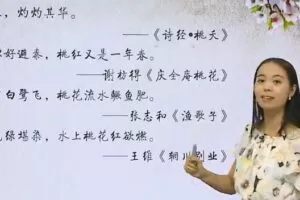 ，灼灼其华。
——《诗经•桃夭》
好避秦，桃红又是一年春。
——谢枋得《庆全庵桃花》
白鹭飞，桃花流水鳜鱼肥。
——张志和《渔歌子》
绿堪染，水上桃花红欲燃。
——王维《辋川别业》